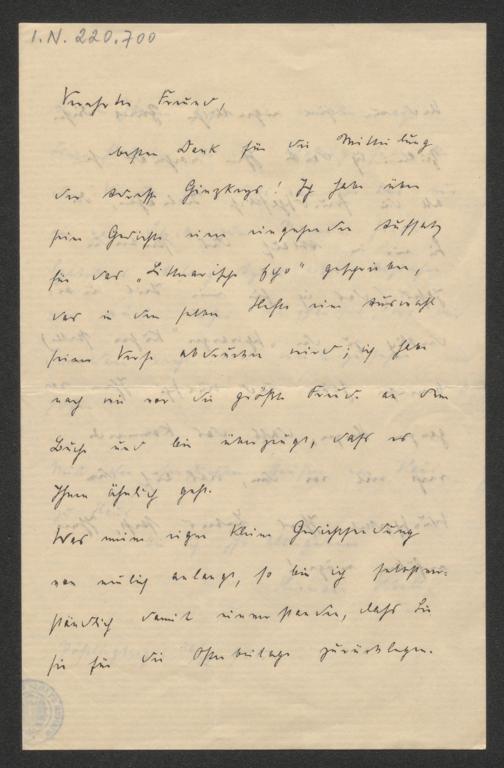 I.N. 220.700
Verehrter Freund,
besten Dank für die Mitteilung
der Adresse Ginzkeys! Ich habe über
seine Gedichte einen eingehenden Aufsatz
für das „Litterarische Echo" geschrieben,
das in dem selben Hefte eine Auswahl
seiner Verse abdrucken wird; ich habe
nach wie vor die größte Freude an dem
Buche und bin überzeugt, dass es
Ihnen ähnlich geht.
Was meine eigene kleine Gedichtsendung
von neulich anlangt, so bin ich selbstver-
ständlich damit einverstanden, dass Sie
sie für die Osterbeilage zurücklegen.